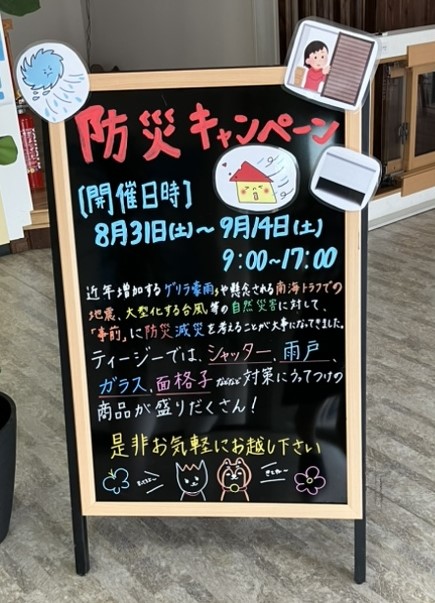 防災キャンペーン
[開催日時]
8月31日(土)〜9月14日(土)
9:00〜17:00
近年増加するゲリラ豪雨や懸念される南海トラフでの
地震、大型化する台風等の自然災害に対して、
「事前」に防災減災を考えることが大事になってきました。
ティージーでは、シャッター、雨戸、
ガラス、面格子などなど対策にうってつけの
商品が盛りだくさん!
是非お気軽にお越し下さい